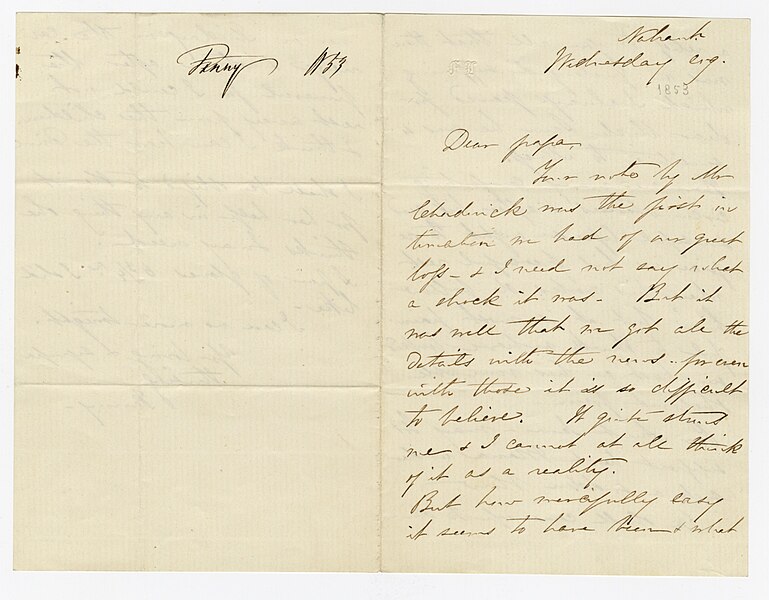 Fanny 1853
Nahant
Wednesday evg.
1853
Dear papa,
Your note by Mr
Chadwick was the first in
timation we had of our great
loss - & I need not say what
a shock it was - But it
was well that we got all the
details with the news - for even
with those it is so difficult
to believe. It quite stuns
me & I cannot at all think
of it as a reality.
But how mercifully easy
it seems to have been & what